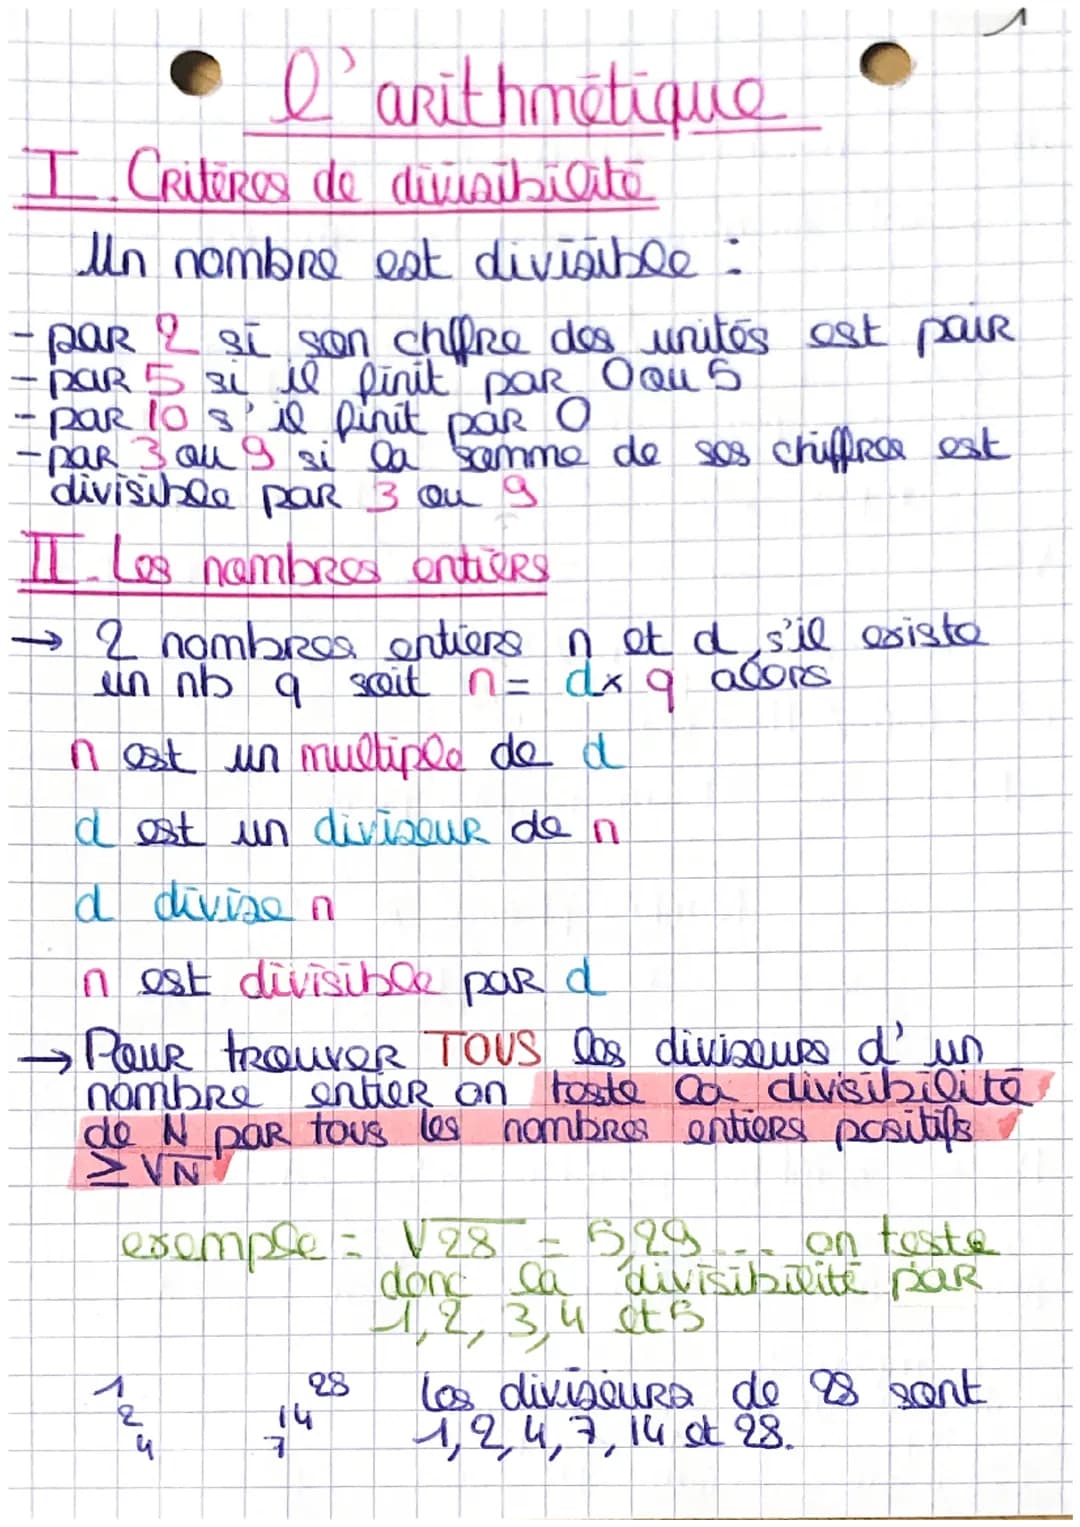 1
l'arithmétique
I. Critères de divisibilité
Un nombre est divisible :
- par 2 si son chiffre des unités est pair
- par 5 si il finit par 0 ou 5
- par 10 s'il finit par 0
- par 3 ou 9 si la somme de ses chiffres est
divisible par 3 ou 9
II. Les nombres entiers
→ 2 nombres entiers n et d, s'il existe
un nb q soit n = d x q alors
n est un multiple de d
d est un diviseur de n
d divise n
n est divisible par d
→ Pour trouver TOUS les diviseurs d'un
nombre entier on teste la divisibilité
de N par tous les nombres entiers positifs
≥ √N
exemple = √28 = 5,29... on teste
donc la divisibilité par
1, 2, 3, 4 et 5
1 28 Les diviseurs de 28 sont
2 14 1, 2, 4, 7, 14 et 28.
4 7